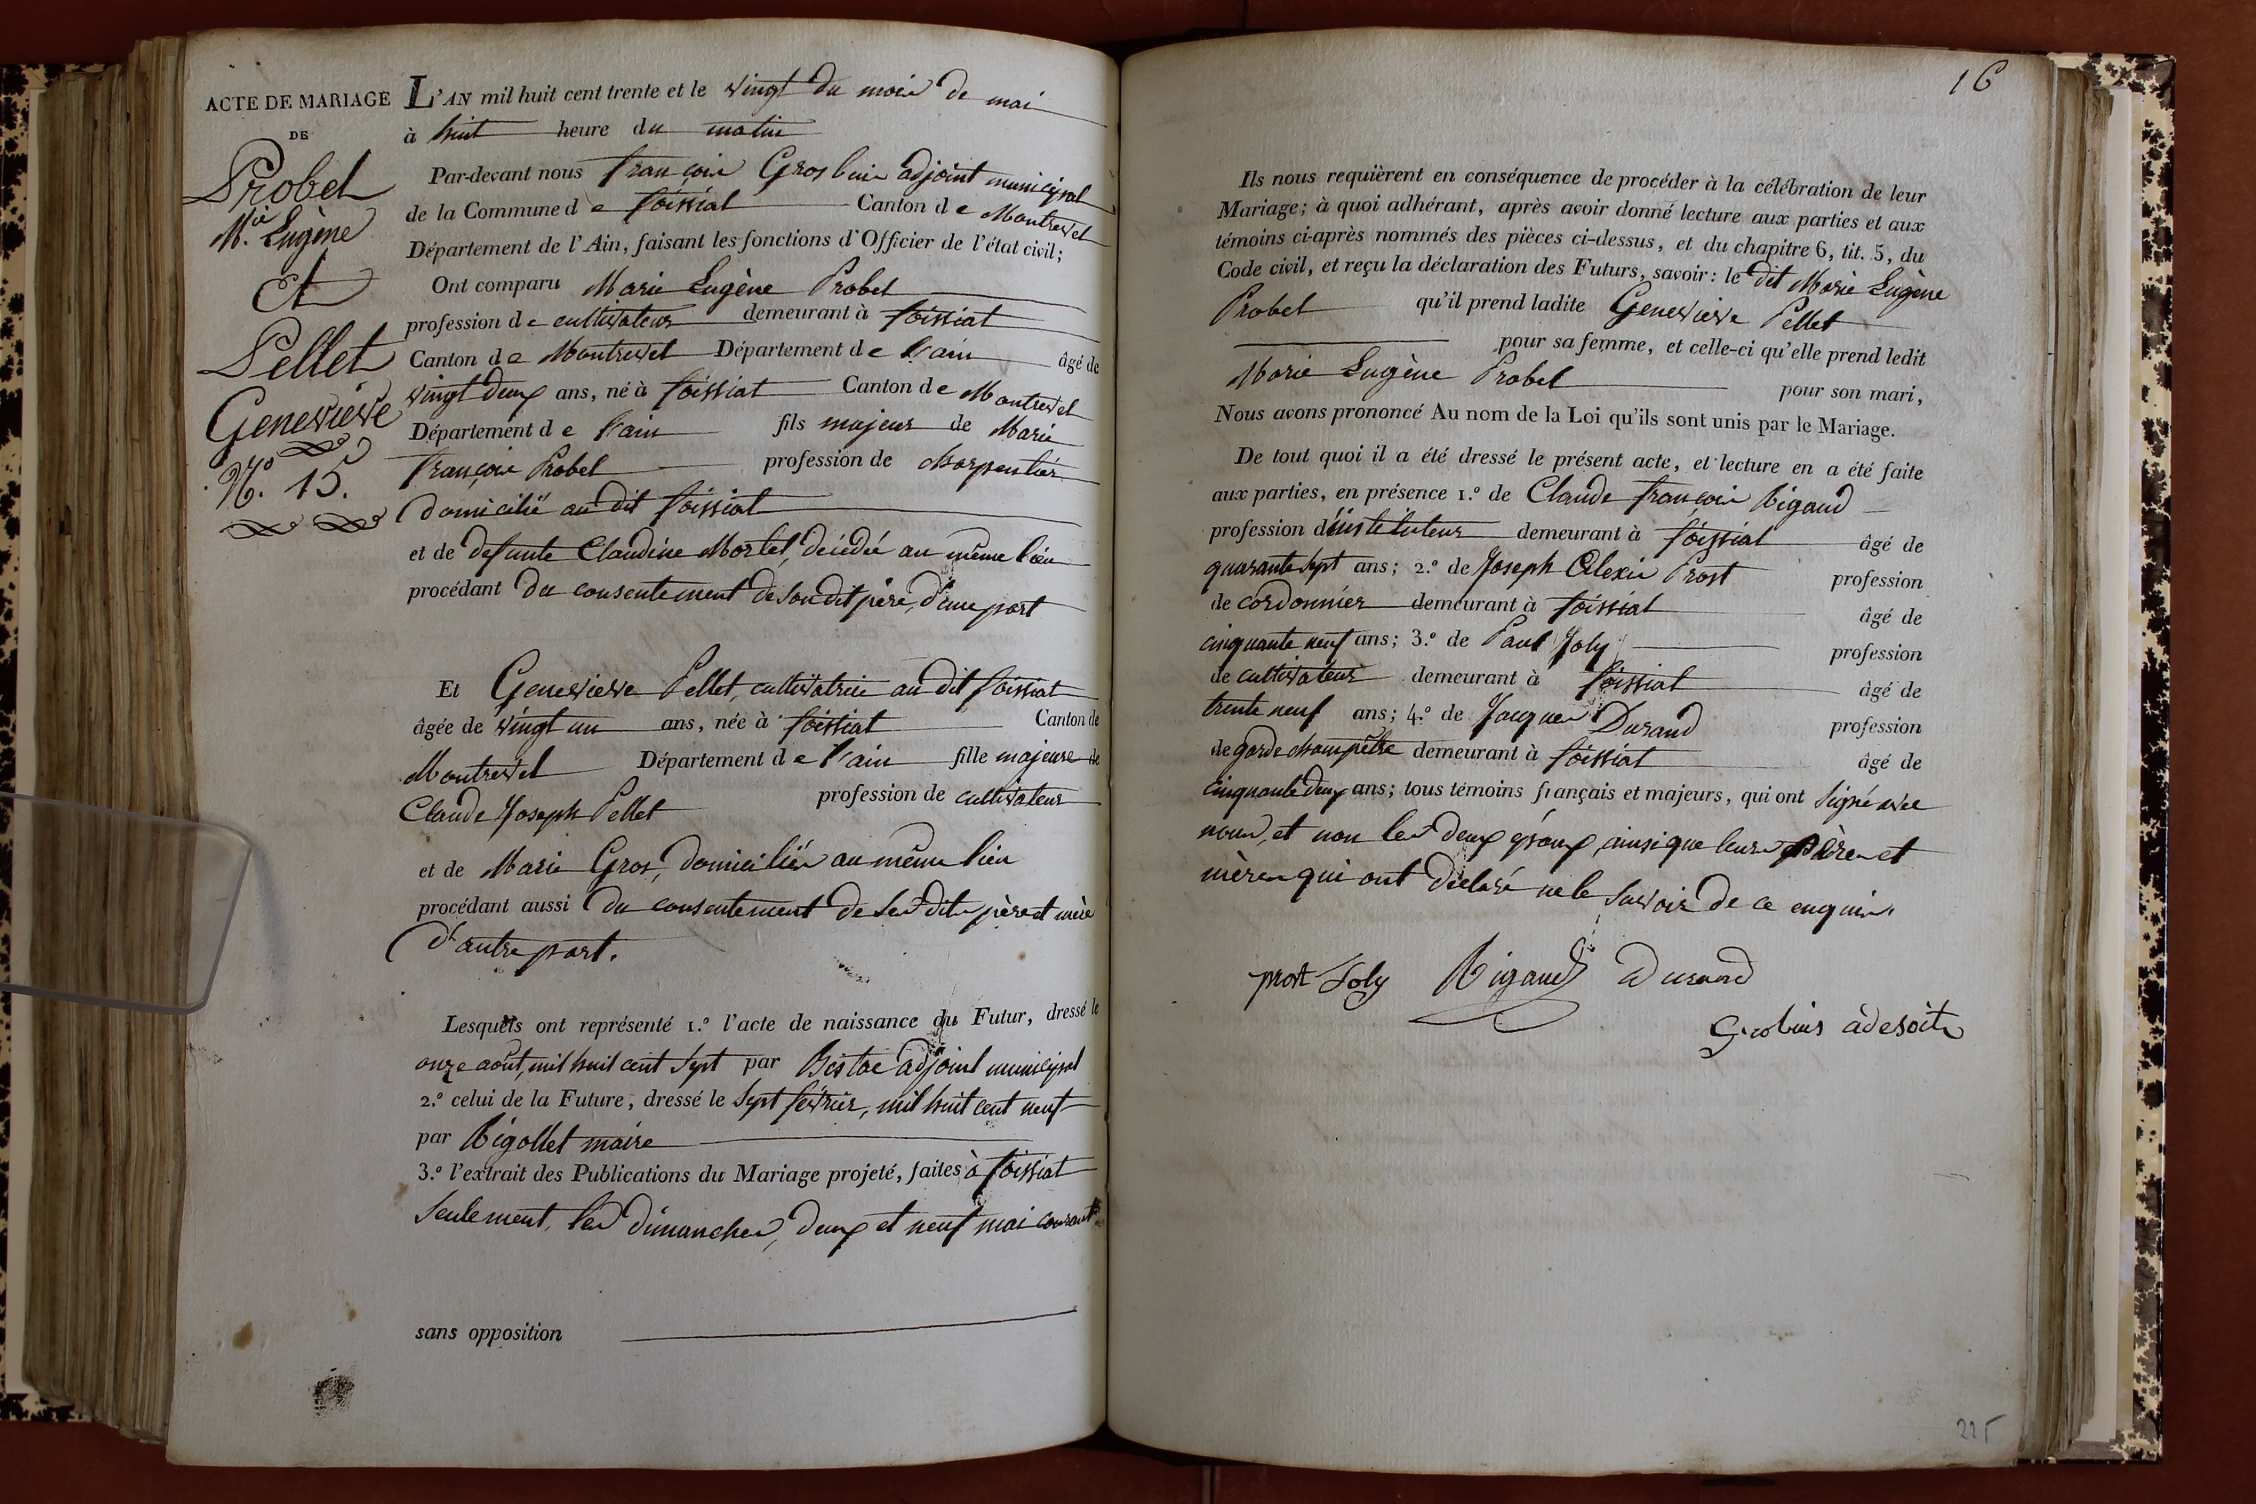 ACTE DE MARIAGE
DE
Probet
M.ie Eugène
Et
Pellet
Genevieve
N.o 15.
L'AN mil huit cent trente et le vingt du mois de mai
à huit heure du matin
Par-devant nous françois Grosbuis adjoint municipal
de la Commune de foissiat Canton de Montrevel
Département de l'Ain, faisant les fonctions d'Officier de l'état civil;
Ont comparu Marie Eugène Probet
profession de cultivateur demeurant à foissiat
Canton de Montrevel Département de l'ain âgé de
vingt deux ans, né à foissiat Canton de Montrevel
Département de l'ain fils majeur de Marie
françois Probet profession de charpentier
domicilié au dit foissiat
et de defunte Claudine Mortel, décédée au même lieu
procédant du consentement de son dit père, d'une part
Et Genevieve Pellet, cultivatrice au dit foissiat
âgée de vingt un ans, née à foissiat Canton de
Montrevel Département de l'ain fille majeure de
Claude Joseph Pellet profession de cultivateur
et de Marie Gros, domiciliés au même lieu
procédant aussi du consentement de ses dits père et mère
d'autre part.
Lesquels ont représenté 1.o l'acte de naissance du Futur, dressé le
onze août, mil huit cent sept par adjoint municipal
2.o celui de la Future, dressé le sept février, mil huit cent neuf
par Rigollet maire
3.o l'extrait des Publications du Mariage projeté, faites à foissiat
seulement, les dimanches, deux et neuf mai courant
sans opposition
16
Ils nous requièrent en conséquence de procéder à la célébration de leur
Mariage; à quoi adhérant, après avoir donné lecture aux parties et aux
témoins ci-après nommés des pièces ci-dessus, et du chapitre 6, tit. 5, du
Code civil, et reçu la déclaration des Futurs, savoir: le dit Marie Eugène
Probet qu'il prend ladite Genevieve Pellet
pour sa femme, et celle-ci qu'elle prend ledit
Marie Eugène Probet pour son mari,
Nous avons prononcé Au nom de la Loi qu'ils sont unis par le Mariage.
De tout quoi il a été dressé le présent acte, et lecture en a été faite
aux parties, en présence 1.o de Claude françois Rigaud
profession d'instituteur demeurant à foissiat âgé de
quarante sept ans; 2.o de Joseph Alexis Prost profession
de cordonnier demeurant à foissiat âgé de
cinquante neuf ans; 3.o de Paul Joly profession
de cultivateur demeurant à foissiat âgé de
trente neuf ans; 4.o de Jacques Durand profession
de garde champêtre demeurant à foissiat âgé de
cinquante deux ans; tous témoins français et majeurs, qui ont signé avec
nous, et non les deux époux, ainsi que leurs pères et
mères qui ont déclaré ne le savoir de ce enquis.
prost Joly Rigaud durand
Grosbuis
225